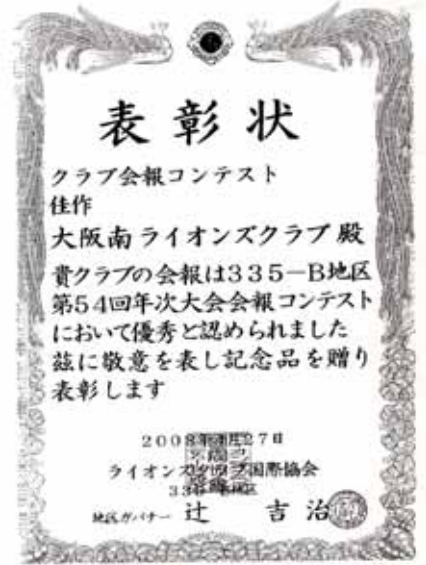 表彰状
クラブ会報コンテスト
佳作
大阪南ライオンズクラブ 殿
貴クラブの会報は335－B地区
第54回年次大会会報コンテスト
において優秀と認められました
茲に敬意を表し記念品を贈り
表彰します
2008年 27日
ライオンズクラブ国際協会
地区ガバナー 辻 吉治